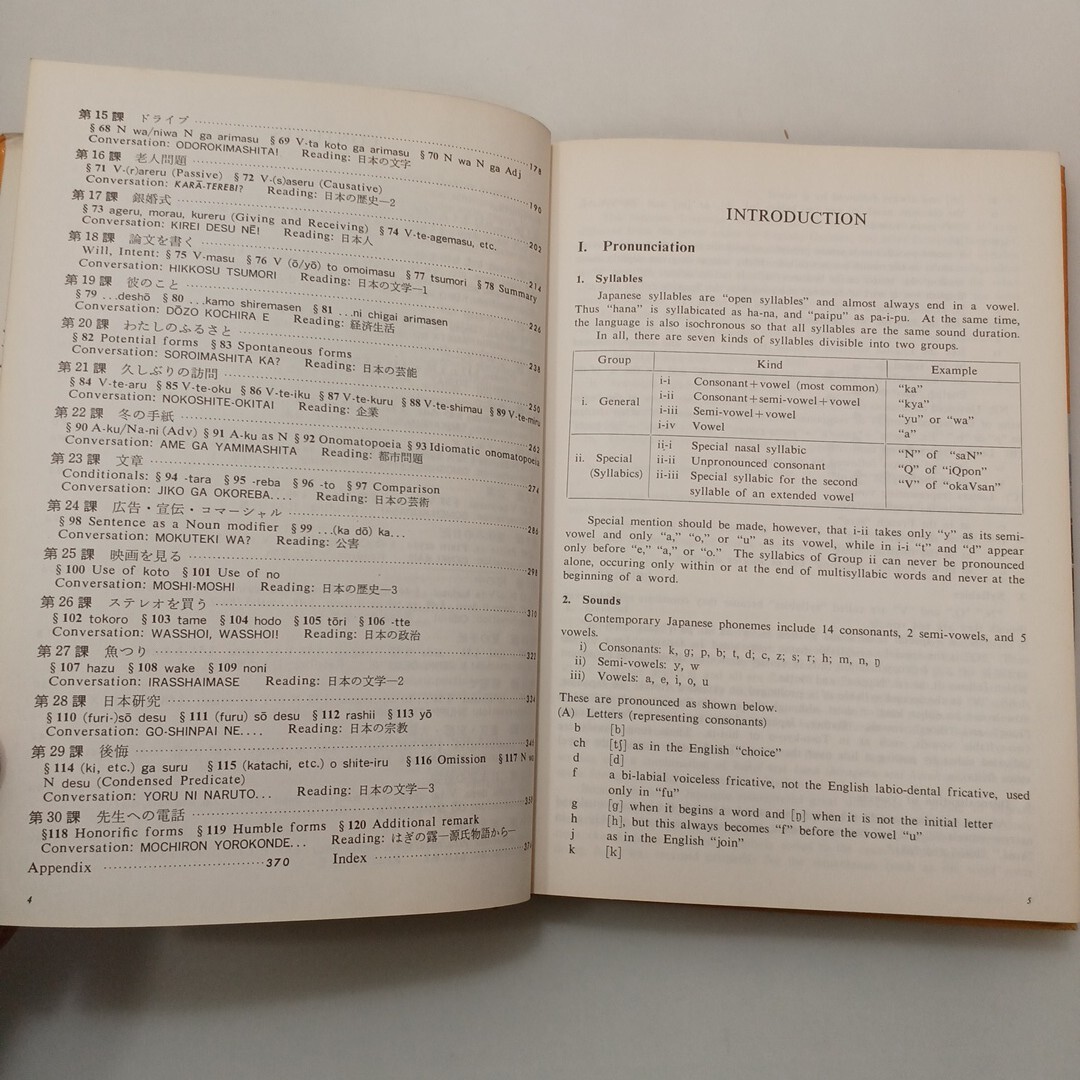 第15課 ドライブ
§68 N wa/niwa N ga arimasu §69 V-ta koto ga arimasu §70 N wa N ga Adj
Conversation: ODOROKIMASHITA! Reading: 日本の文字 178
第16課 老人問題
§71 V-(r)areru (Passive) §72 V-(s)aseru (Causative)
Conversation: KARĀ-TEREBI? Reading: 日本の歴史—2 190
第17課 銀婚式
§73 ageru, morau, kureru (Giving and Receiving) §74 V-te-agemasu, etc.
Conversation: KIREI DESU NĒ! Reading: 日本人 202
第18課 論文を書く
Will, Intent: §75 V-masu §76 V (ō/yō) to omoimasu §77 tsumori §78 Summary
Conversation: HIKKOSU TSUMORI Reading: 日本の文学—1 214
第19課 彼のこと
§79 ...deshō §80 ...kamo shiremasen §81 ...ni chigai arimasen
Conversation: DŌZO KOCHIRA E Reading: 経済生活 226
第20課 わたしのふるさと
§82 Potential forms §83 Spontaneous forms
Conversation: SOROIMASHITA KA? Reading: 日本の芸能 238
第21課 久しぶりの訪問
§84 V-te-aru §85 V-te-oku §86 V-te-iku §87 V-te-kuru §88 V-te-shimau §89 V-te-miru
Conversation: NOKOSHITE-OKITAI Reading: 企業 250
第22課 冬の手紙
§90 A-ku/Na-ni (Adv) §91 A-ku as N §92 Onomatopoeia §93 Idiomatic onomatopoeia
Conversation: AME GA YAMIMASHITA Reading: 都市問題 262
第23課 文章
Conditionals: §94 -tara §95 -reba §96 -to §97 Comparison
Conversation: JIKO GA OKOREBA.... Reading: 日本の芸術 274
第24課 広告・宣伝・コマーシャル
§98 Sentence as a Noun modifier §99 ...(ka dō) ka...
Conversation: MOKUTEKI WA? Reading: 公害 286
第25課 映画を見る
§100 Use of koto §101 Use of no
Conversation: MOSHI-MOSHI Reading: 日本の歴史—3 298
第26課 ステレオを買う
§102 tokoro §103 tame §104 hodo §105 tōri §106 -tte 310
Conversation: WASSHOI, WASSHOI! Reading: 日本の政治
第27課 魚つり 322
§107 hazu §108 wake §109 noni
Conversation: IRASSHAIMASE Reading: 日本の文学—2
第28課 日本研究 334
§110 (furi-)sō desu §111 (furu) sō desu §112 rashii §113 yō
Conversation: GO-SHINPAI NE.... Reading: 日本の宗教
第29課 後悔
§114 (ki, etc.) ga suru §115 (katachi, etc.) o shite-iru §116 Omission §117 N wa
N desu (Condensed Predicate)
Conversation: YORU NI NARUTO... Reading: 日本の文学—3
第30課 先生への電話
§118 Honorific forms §119 Humble forms §120 Additional remark
Conversation: MOCHIRON YOROKONDE... Reading: はぎの露—源氏物語から—
Appendix 370 Index
4
INTRODUCTION
I. Pronunciation
1. Syllables
Japanese syllables are “open syllables” and almost always end in a vowel.
Thus “hana” is syllabicated as ha-na, and “paipu” as pa-i-pu. At the same time,
the language is also isochronous so that all syllables are the same sound duration.
In all, there are seven kinds of syllables divisible into two groups.
Group Kind Example
i. General i-i Consonant+vowel (most common) “ka”
i-ii Consonant+semi-vowel+vowel “kya”
i-iii Semi-vowel+vowel “yu” or “wa”
i-iv Vowel “a”
ii. Special (Syllabics) ii-i Special nasal syllabic “N” of “saN”
ii-ii Unpronounced consonant “Q” of “iQpon”
ii-iii Special syllabic for the second “V” of “okaVsan”
syllable of an extended vowel
Special mention should be made, however, that i-ii takes only “y” as its semi-
vowel and only “a,” “o,” or “u” as its vowel, while in i-i “t” and “d” appear
only before “e,” “a,” or “o.” The syllabics of Group ii can never be pronounced
alone, occuring only within or at the end of multisyllabic words and never at the
beginning of a word.
2. Sounds
Contemporary Japanese phonemes include 14 consonants, 2 semi-vowels, and 5
vowels.
i) Consonants: k, g; p, b; t, d; c, z; s; r; h; m, n, ŋ
ii) Semi-vowels: y, w
iii) Vowels: a, e, i, o, u
These are pronounced as shown below.
(A) Letters (representing consonants)
b [b]
ch [tʃ] as in the English “choice”
d [d]
f a bi-labial voiceless fricative, not the English labio-dental fricative, used
only in “fu”
g [g] when it begins a word and [ŋ] when it is not the initial letter
h [h], but this always becomes “f” before the vowel “u”
j as in the English “join”
k [k]
5